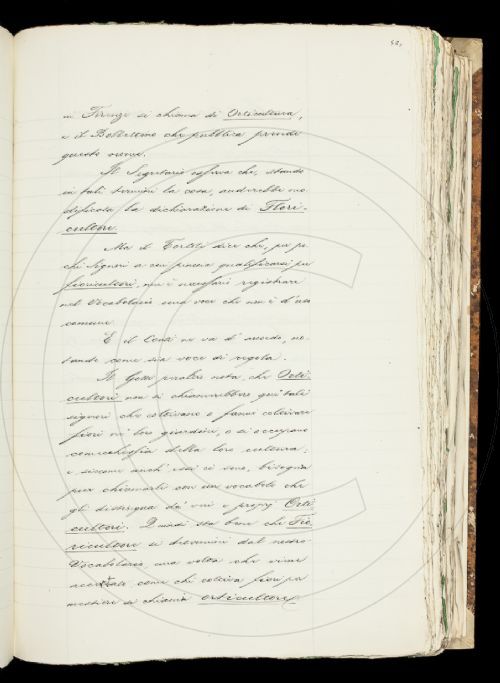 in Firenze si chiama di Orticultura,
e il Bollettino che pubblica prende
questo nome.
Il Segretario osserva che, stando
in tali termini la cosa, andrebbe mo-
dificata la dichiarazione di Flori-
cultore.
Ma il Tortoli dice che, per po-
chi Signori a cui piaccia qualificarsi per
floricultori, non è necessario registrare
nel Vocabolario una voce che non è d'uso
comune.
E il Conti ne va d'accordo, no-
tando come sia voce di regola.
Il però nota, che Orti-
cultori non si chiamerebbero quei tali
signori che coltivano o fanno coltivare
fiori ne' loro giardini, o si occupano
con della loro cultura;
e siccome anch'essi ci sono, bisogna
pur chiamarli con un vocabolo che
gli distingua da' veri e proprj Orti-
cultori. Quindi sta bene che Flo-
ricultore si determini dal nostro
Vocabolario, una volta che viene
accertato come chi coltiva fiori per
mestiere si chiami orticultore.